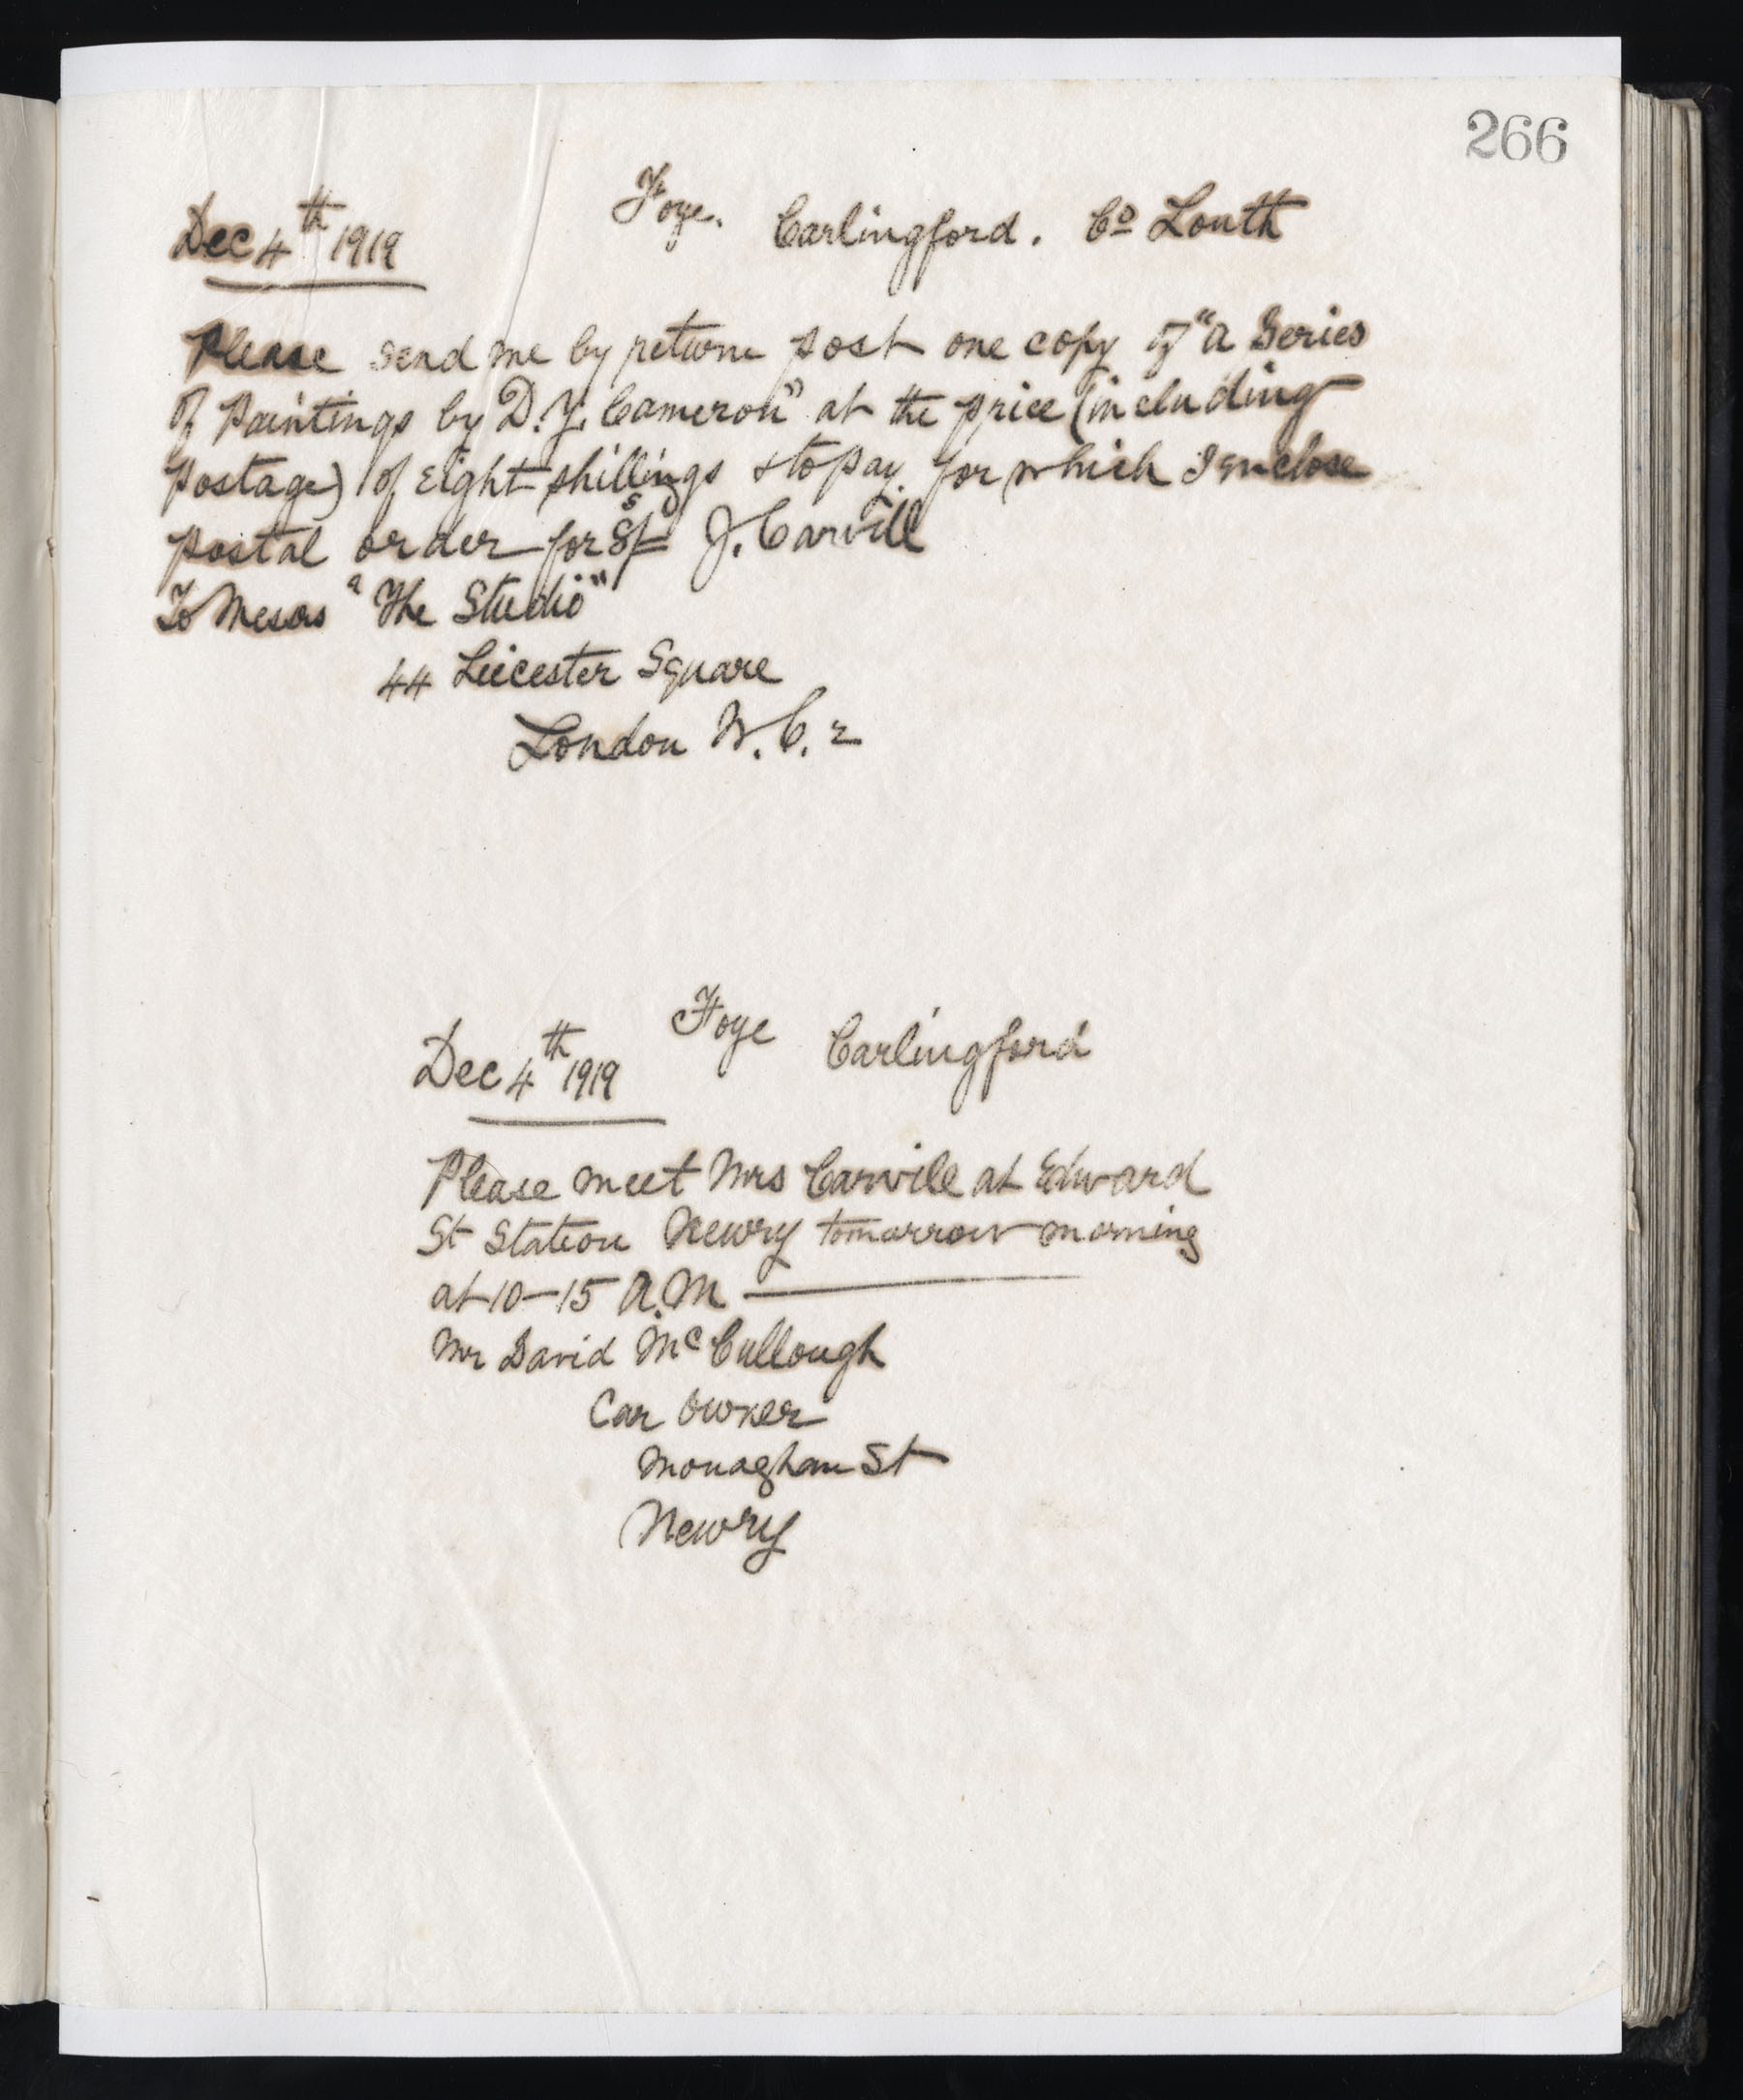 266
Foye. Carlingford. Co Louth
Dec 4th 1919
Please send me by return post one copy of "A Series
of Paintings by D. Y. Cameron" at the price (including
postage) of eight shillings to pay for which I enclose
postal order for 8s/= J. Carvill
To Messrs "The Studio"
44 Leicester Square
London W.C. 2
Foye Carlingford
Dec 4th 1919
Please meet Mrs Carvill at Edward
St Station Newry tomorrow morning
at 10-15 A.M
Mr David McCullough
Car Owner
Monaghan St
Newry